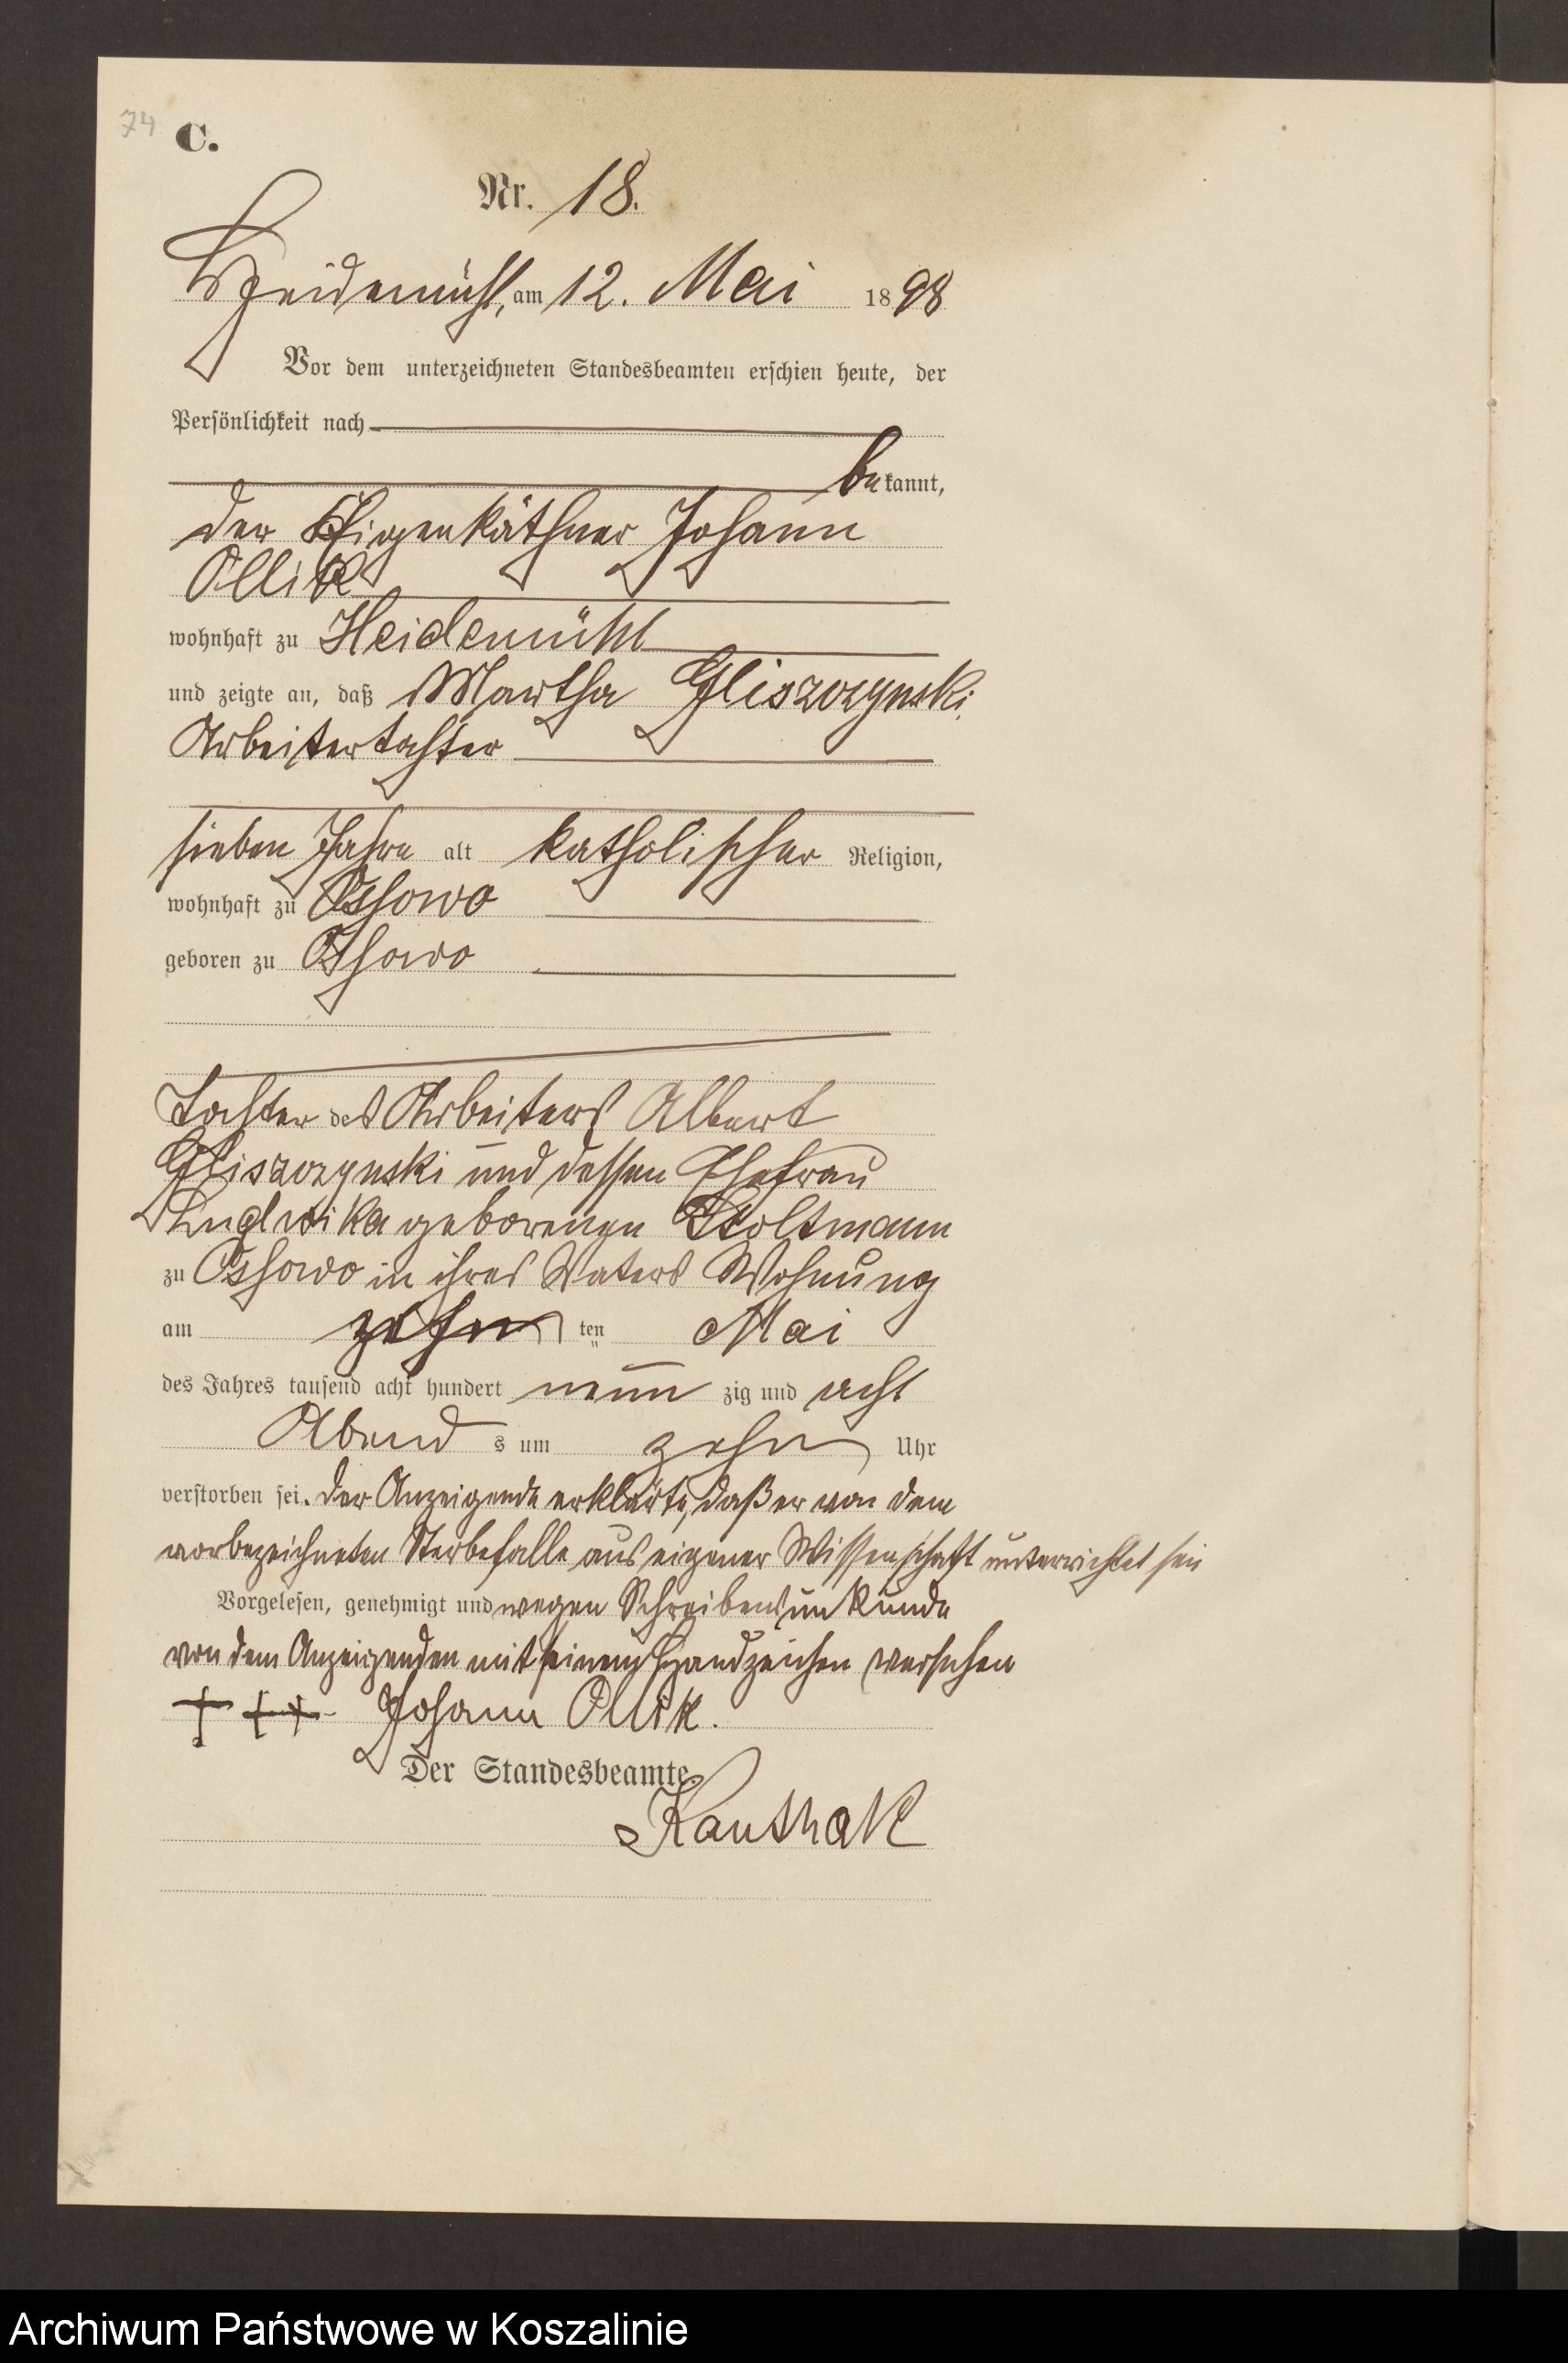 74 C.
Nr. 18.
Heidemühl, am 12. Mai 1898
Vor dem unterzeichneten Standesbeamten erschien heute, der
Persönlichkeit nach
bekannt,
der Eigenkäthner Johann
Ollik
wohnhaft zu Heidemühl
und zeigte an, daß Martha Gliszczynski,
Arbeitertochter
sieben Jahre alt katholischer Religion,
wohnhaft zu Ossowo
geboren zu Ossowo
Tochter des Arbeiters Albert
Gliszczynski und dessen Ehefrau
Ludwika geborenen Stoltmann
zu Ossowo in ihres Vaters Wohnung
am zehn ten Mai
des Jahres tausend acht hundert neun zig und acht
Abend s um zehn Uhr
verstorben sei. Der Anzeigende erklärte, daß er von dem
vorbezeichneten Sterbefalle aus eigener Wissenschaft unterrichtet sei
Vorgelesen, genehmigt und wegen Schreibensunkunde
von dem Anzeigenden mit seinem Handzeichen versehen
+ + + Johann Ollik.
Der Standesbeamte.
Kauthak
Archiwum Państwowe w Koszalinie